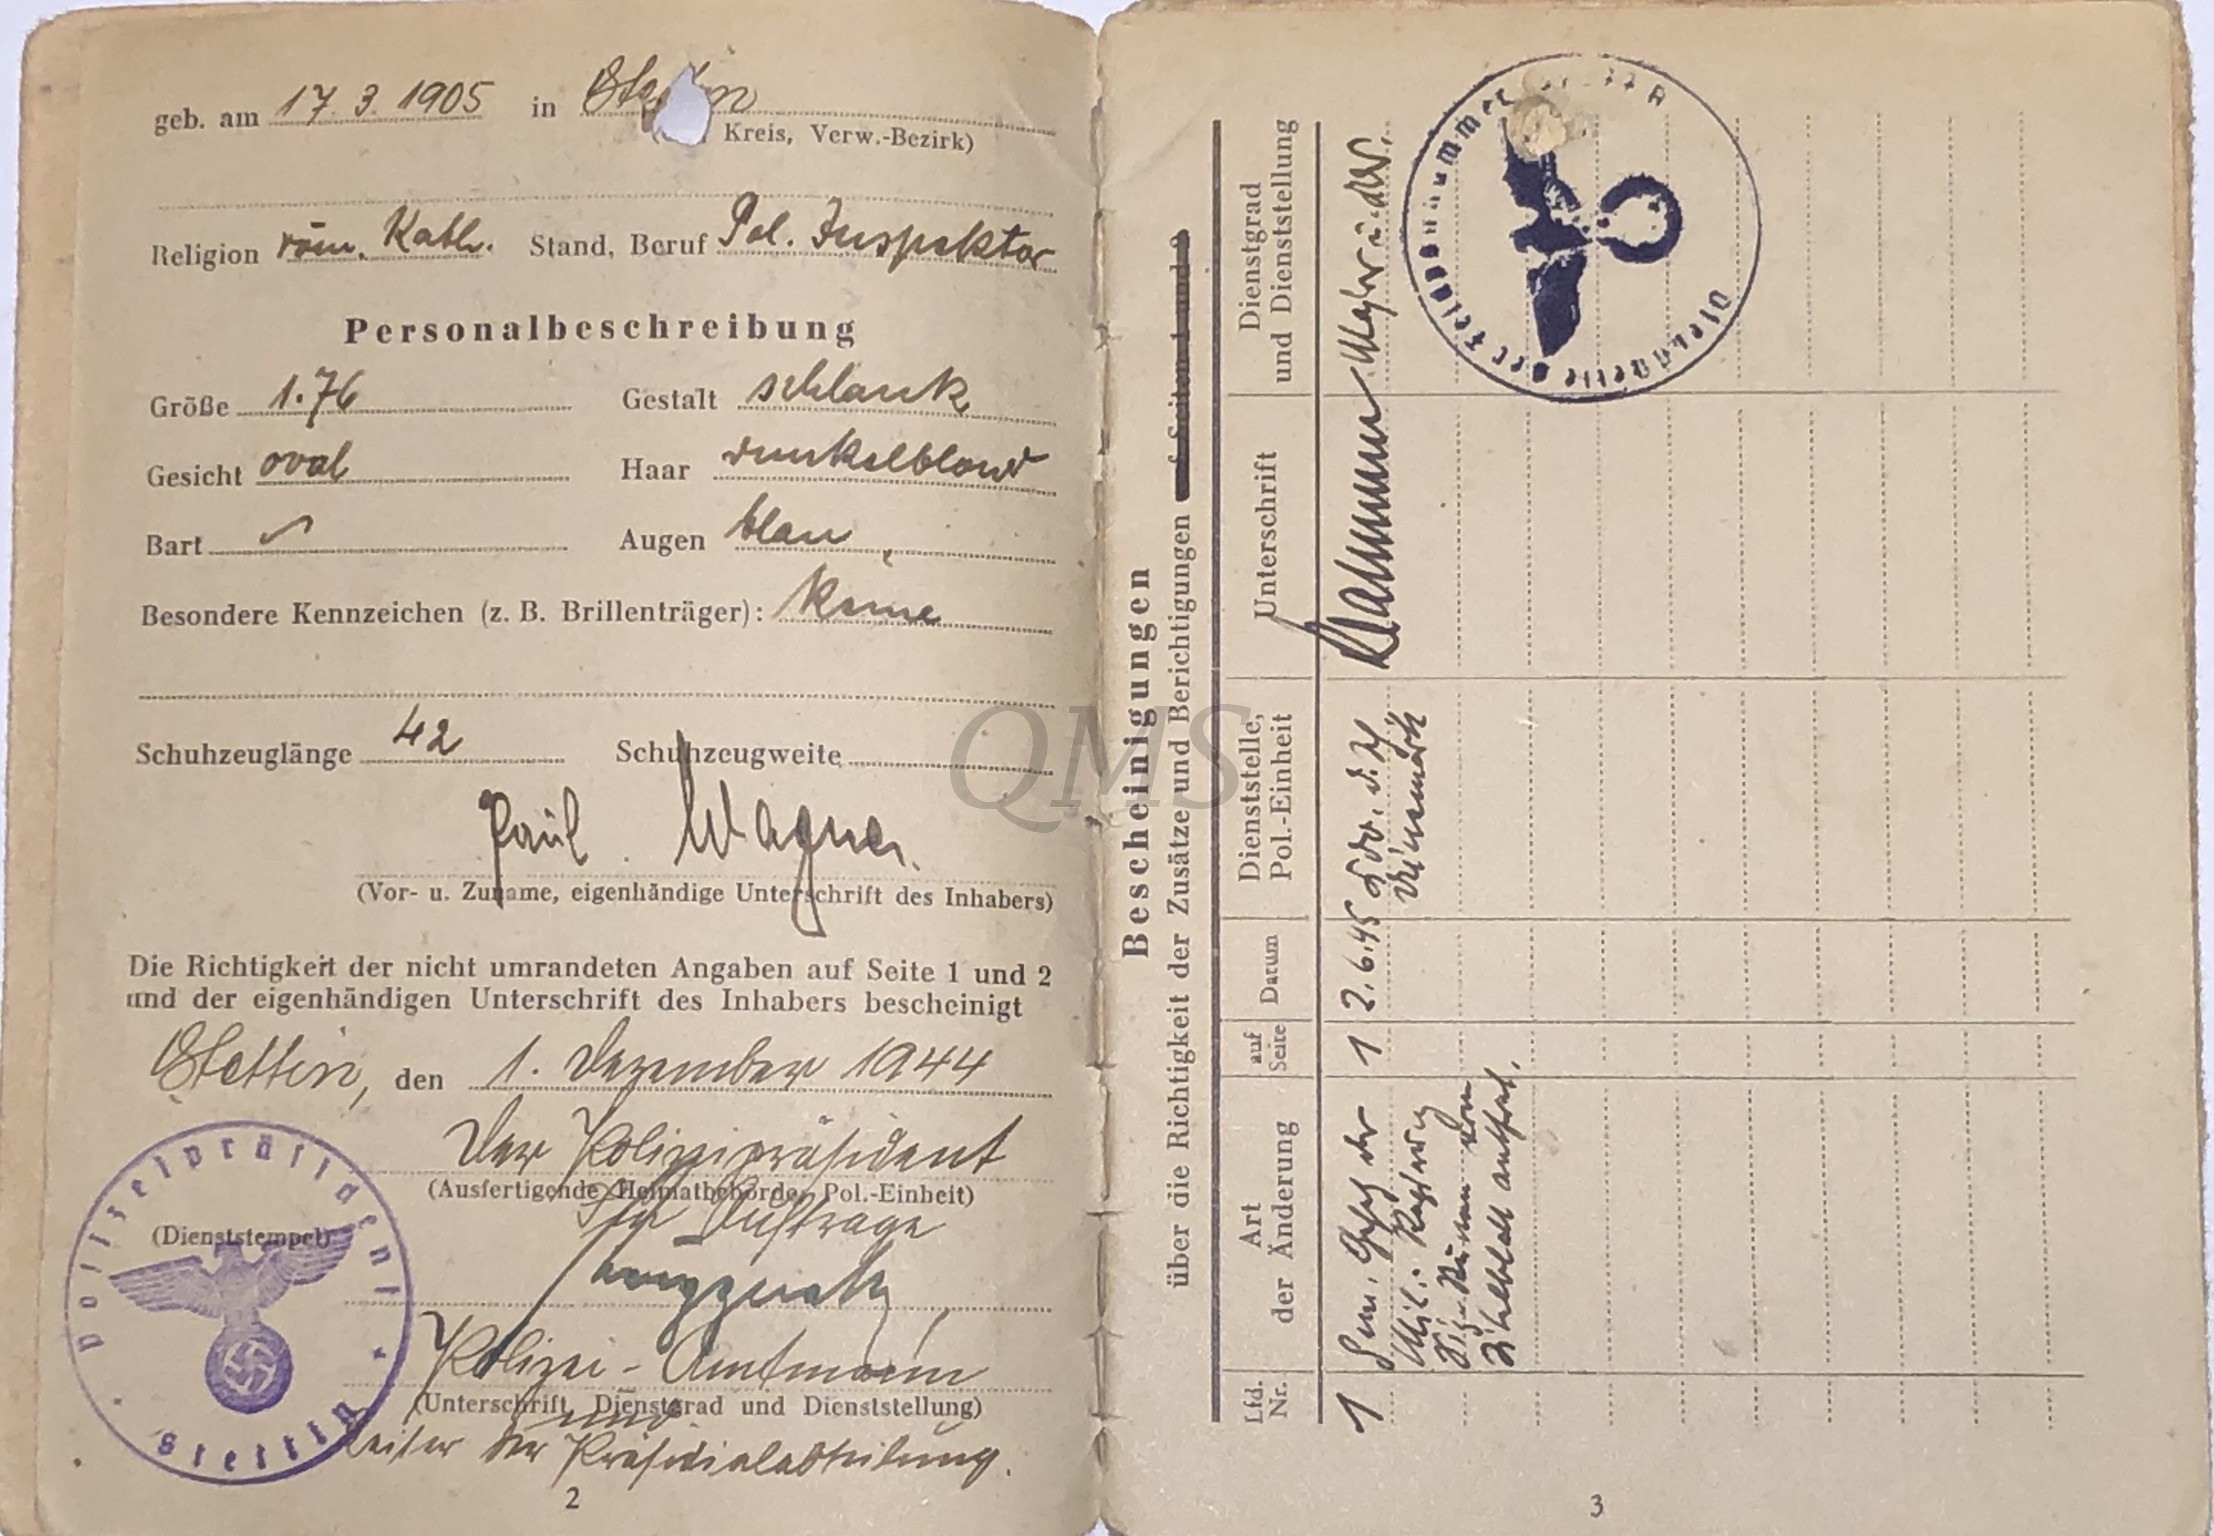 geb. am 17. 3. 1905 in
Kreis, Verw.-Bezirk)
Religion röm. Kath. Stand, Beruf Pol. Inspektor
Personalbeschreibung
Größe 1.76 Gestalt schlank
Gesicht oval Haar dunkelblond
Bart Augen blau
Besondere Kennzeichen (z. B. Brillenträger): Keine
Schuhzeuglänge 42 Schuhzeugweite
Paul Wagner.
(Vor- u. Zuname, eigenhändige Unterschrift des Inhabers)
Die Richtigkeit der nicht umrandeten Angaben auf Seite 1 und 2
und der eigenhändigen Unterschrift des Inhabers bescheinigt
Stettin, den 1. Dezember 1944
Der Polizeipräsident
(Ausfertigende Heimatbehörde, Pol.-Einheit)
Im Auftrage
(Dienststempel)
Polizeipräsident Stettin
Polizei-Amtmann
(Unterschrift, Dienstgrad und Dienststellung)
und
Leiter der Präsidialabteilung.
2
QMS
Bescheinigungen
über die Richtigkeit der Zusätze und Berichtigungen auf Seiten 1 und 2
Lfd. Nr.
Art der Änderung
auf Seite
Datum
Dienststelle, Pol.-Einheit
Unterschrift
Dienstgrad und Dienststellung
1
1
2.6.45
Dienststelle der Feldpostnummer
3